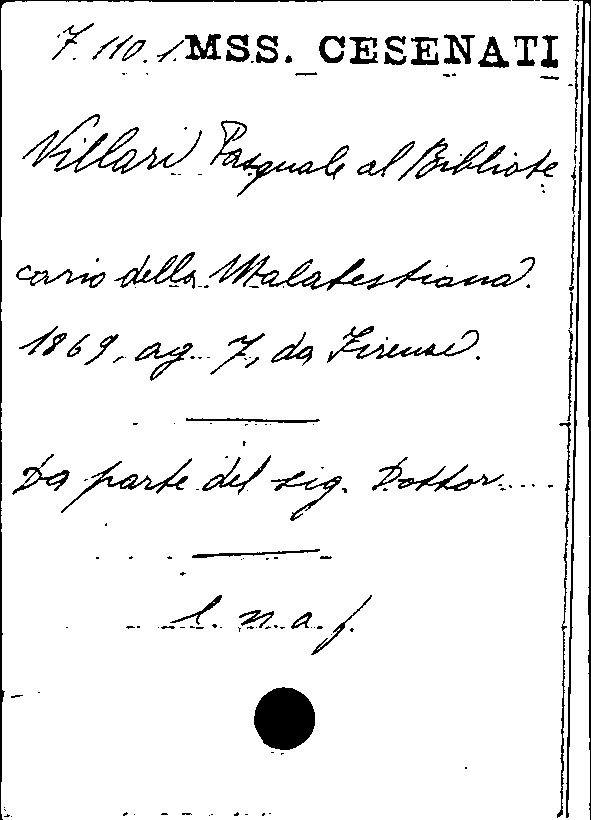 7. 110. 1. MSS. CESENATI
Villari Pasquale al Bibliote
cario della Malatestiana.
1869, ag. 7, da Firenze.
Da parte del sig. Dottor....
l. n. a. f.